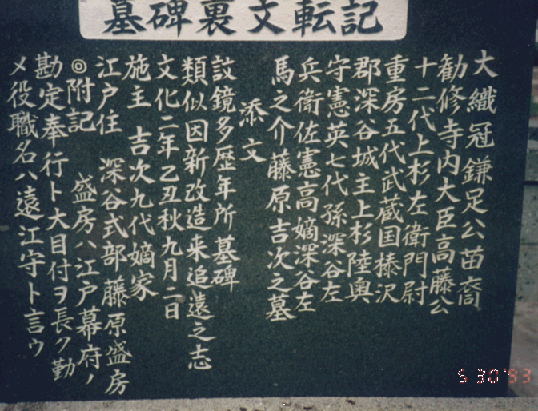 墓碑裏文転記
大織冠鎌足公苗裔
勧修寺内大臣高藤公
十二代上杉左衛門尉
重房五代武蔵国榛沢
郡深谷城主上杉陸奥
守憲英七代孫深谷左
兵衛佐憲高嫡深谷左
馬之介藤原吉次之墓
添文
説鏡多歴年所墓碑
類似因新改造来追遠之志
文化二年乙丑秋九月二日
施主 吉次九代嫡家
江戸住 深谷式部藤原盛房
◎附記 盛房ハ江戸幕府ノ
勘定奉行ト大目付ヲ長ク勤
メ役職名ハ遠江守ト言ゥ
5 30'93